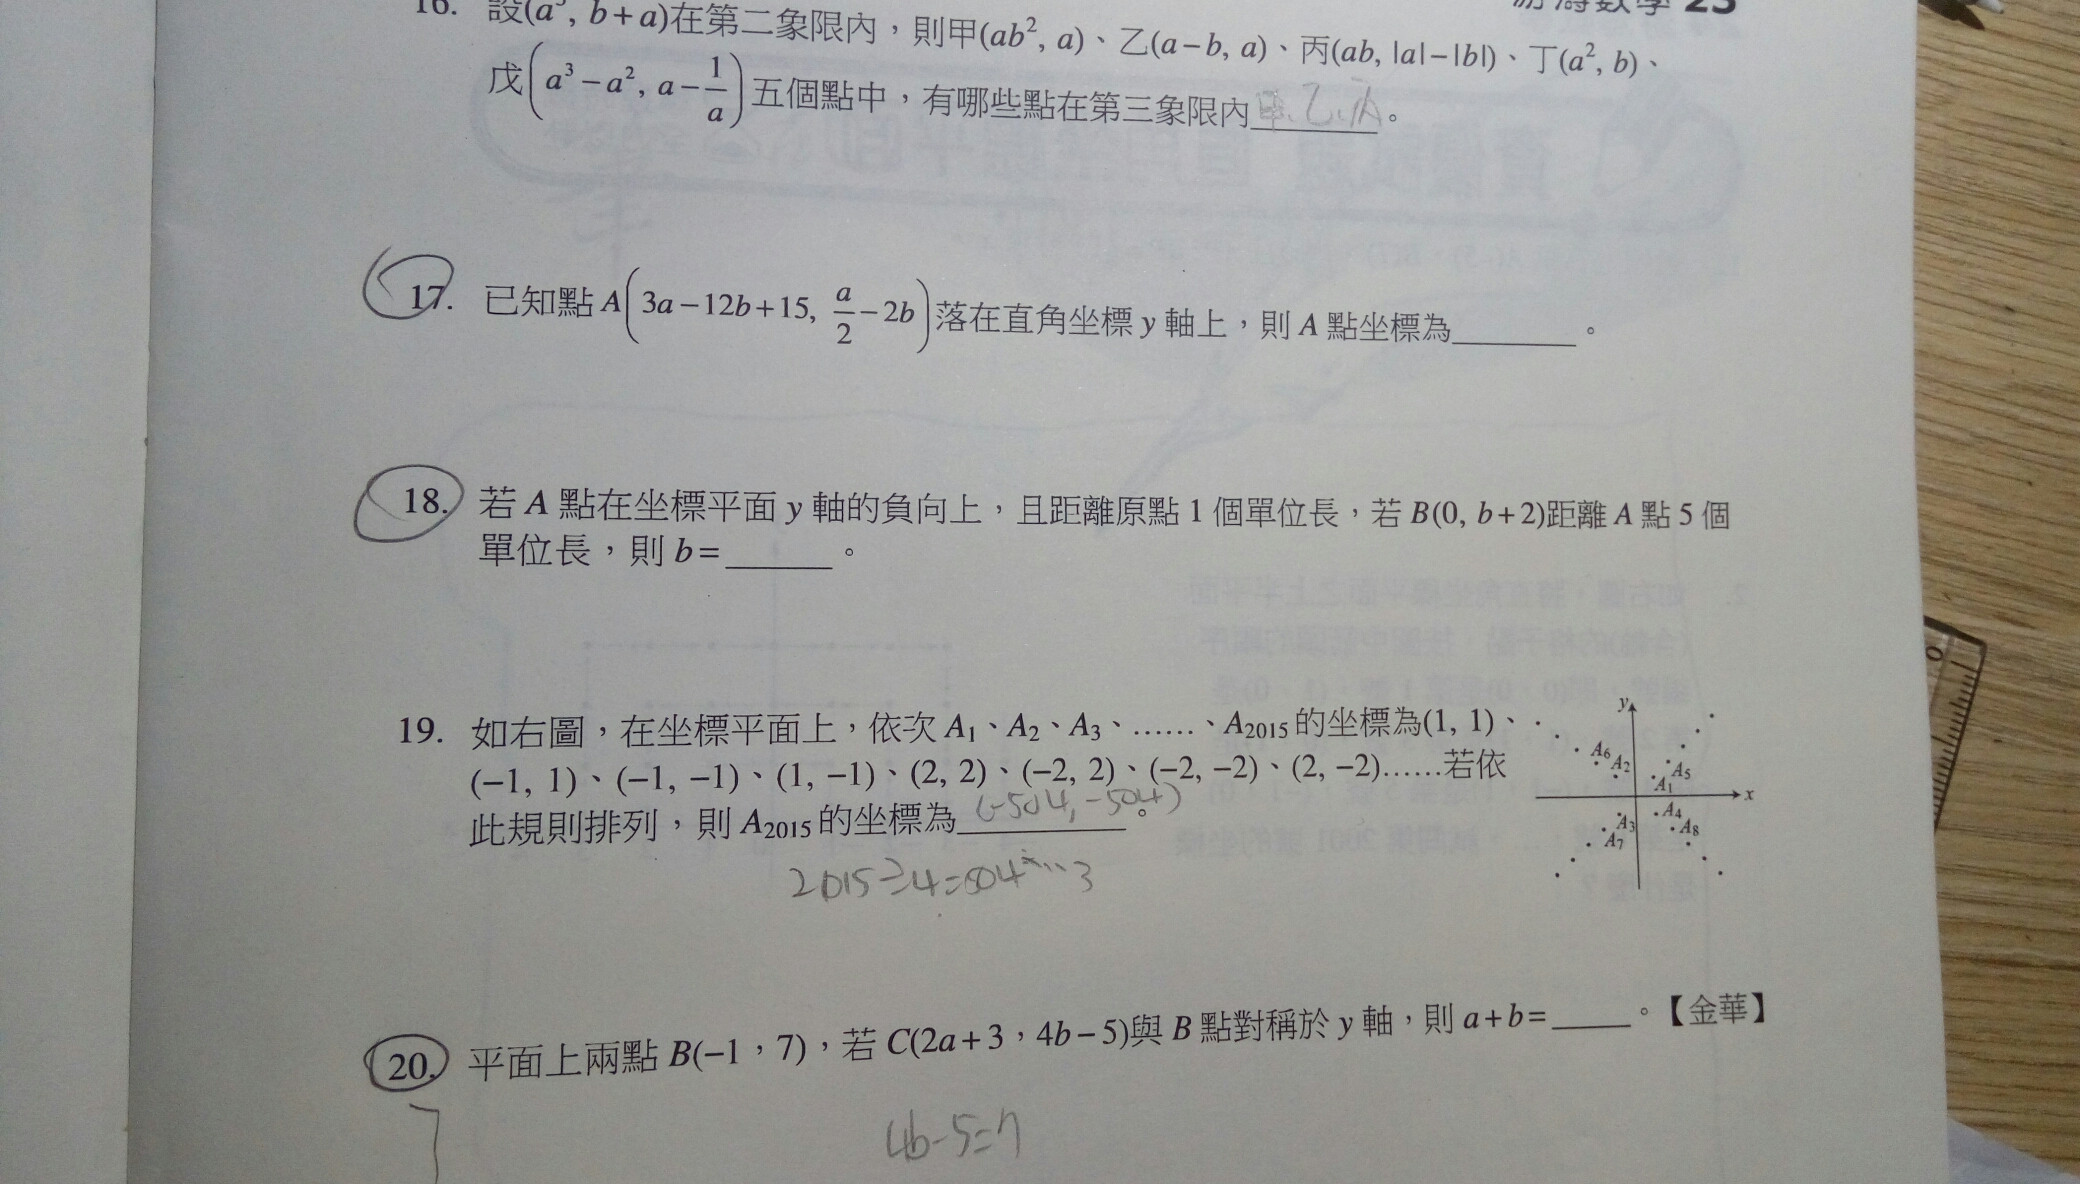 游 數學 23
16. 設(a³, b+a)在第二象限內，則甲(ab², a)、乙(a−b, a)、丙(ab, |a|−|b|)、丁(a², b)、
戊(a³−a², a−1/a)五個點中，有哪些點在第三象限內甲、乙、_______。
17. 已知點A(3a−12b+15, a/2−2b)落在直角坐標y軸上，則A點坐標為_______。
18. 若A點在坐標平面y軸的負向上，且距離原點1個單位長，若B(0, b+2)距離A點5個
單位長，則b=______。
19. 如右圖，在坐標平面上，依次A₁、A₂、A₃、……、A₂₀₁₅的坐標為(1, 1)、
(−1, 1)、(−1, −1)、(1, −1)、(2, 2)、(−2, 2)、(−2, −2)、(2, −2)……若依
此規則排列，則A₂₀₁₅的坐標為(-504, -504)。
2015÷4=504…3
y
A₆
A₂
A₅
A₁
x
A₄
A₃
A₈
A₇
20. 平面上兩點B(−1，7)，若C(2a+3，4b−5)與B點對稱於y軸，則a+b=_____。【金華】
4b-5=7